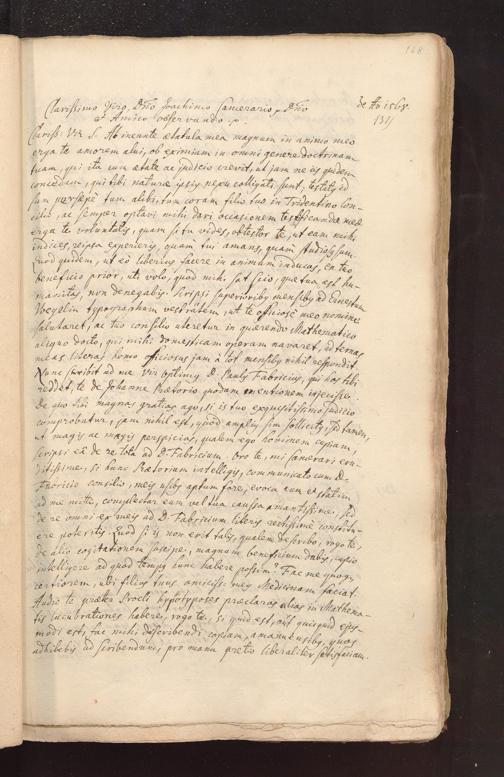 168
Clarissimo Viro, Dño Joachimo Camerario, Dño
de Aō 1568.
et Amico observando p.
Clariss: Vir S. Ab ineunte ætatula mea magnum in animo meo
erga te amorem alui, ob eximiam in omni genere doctrinam
tuam, qui ita cum ætate ac judicio crevit, ut jam ne iis quidem
concedam, qui tibi naturæ ipsius nexu colligati sunt; testatus id
sum persæpe tum alibi, tum coram filio tuo in Tridentino Con
cilio, ac semper optavi mihi dari occasionem testificandæ meæ
erga te voluntatis, quam si tu vides, obtestor te, ut eam mihi
indices, reipsa experieris, quam tui amans, quam studiosus sum.
Quod quidem, ut eo liberius facere in animum inducas, en teo
beneficio prior, uti volo, quod mihi, sat scio, quæ tua est hu-
manitas, non denegabis. Scripsi superioribus mensibus ad Ernestum
Voegelin typographum vestratem, ut te officiose meo nomine
salutaret, ac tuo consilio uteretur in quærendo Mathematico
aliquo docto, qui mihi domesticam operam navaret, id ternas
meas literas homo officiosus jam à tot mensibus nihil respondit.
Nunc scribit ad me vir optimus D. Paulus Fabricius, qui has tibi
reddet, te de Johanne Prætorio quodam mentionem injecisse.
De quo tibi magnas gratias ago, si is tuo exquisitissimo judicio
comprobatur, jam nihil est, quod amplius sim sollicitus, sed tamen,
ut magis ac magis perspicias, qualem ego hominem cupiam,
scripsi eā de re tota ad D. Fabricium. Oro te, mi Camerari eru-
ditissime, si hunc Prætorium intelligis, communicato cum D.
Fabricio consilio, meis usibus aptum fore, evoca eum et statim
ad me mitte, complectar eum vel tua caussa amantissime. sed
de re omni ex meis ad D. Fabricium literis rectissime constitu-
ere poteritis. Quod si is non erit talis, qualem describo, rogo te,
de alio cogitationem suscipe, magnum beneficium dabis, cupio
intelligere ad quod tempus eum habere possim? Fac me quoque
certiorem, ubi filius tuus amicissimus meus Medicinam faciat.
Audio te præter Procli hypotyposes præclaras alias in Mathema-
tis lucubrationes habere, rogo te, si quid est, aut quicquid ejus-
modi est, fac mihi describendi copiam, amanuensibus, quos
adhibebis ad scribendum, pro manu pretio liberaliter satisfaciam.